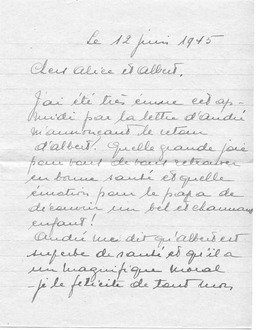 Le 12 juin 1945
Chers Alice et Albert.
J'ai été très émue cet ap-
midi par la lettre d'andré
m'annonçant le retour
d'albert! Quelle grande joie
pour vous de vous retrouver
en bonne santé et quelle
émotion pour le papa de
découvrir un bel et charmant
enfant!
André me dit qu'Albert est
superbe de santé et qu'il a
un magnifique moral
- je le félicite de tout mon